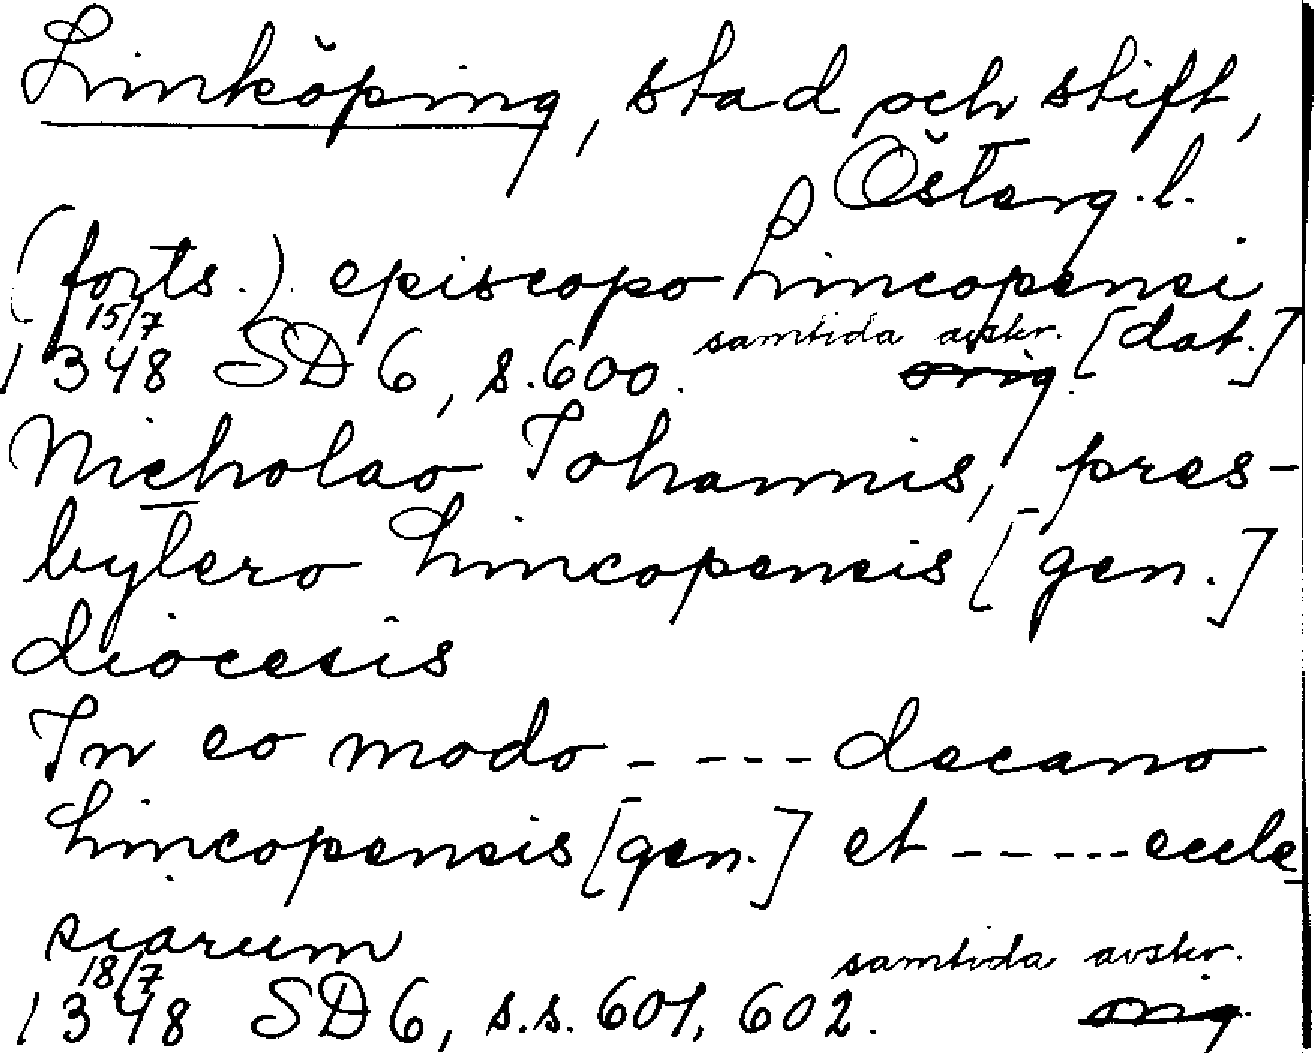 Linköping, stad och stift,
Österg.l.
(forts.) episcopo Lincopensi
15/7 samtida avskr. [dat.]
1348 SD 6, s.600. orig.
Nicholao Johannis, pres-
bytero Lincopensis [gen.]
diocesis
In eo modo ----- decano
Lincopensis [gen.] et ----- eccle-
siarum
18/7 samtida avskr.
1348 SD 6, s.s. 601, 602. orig.